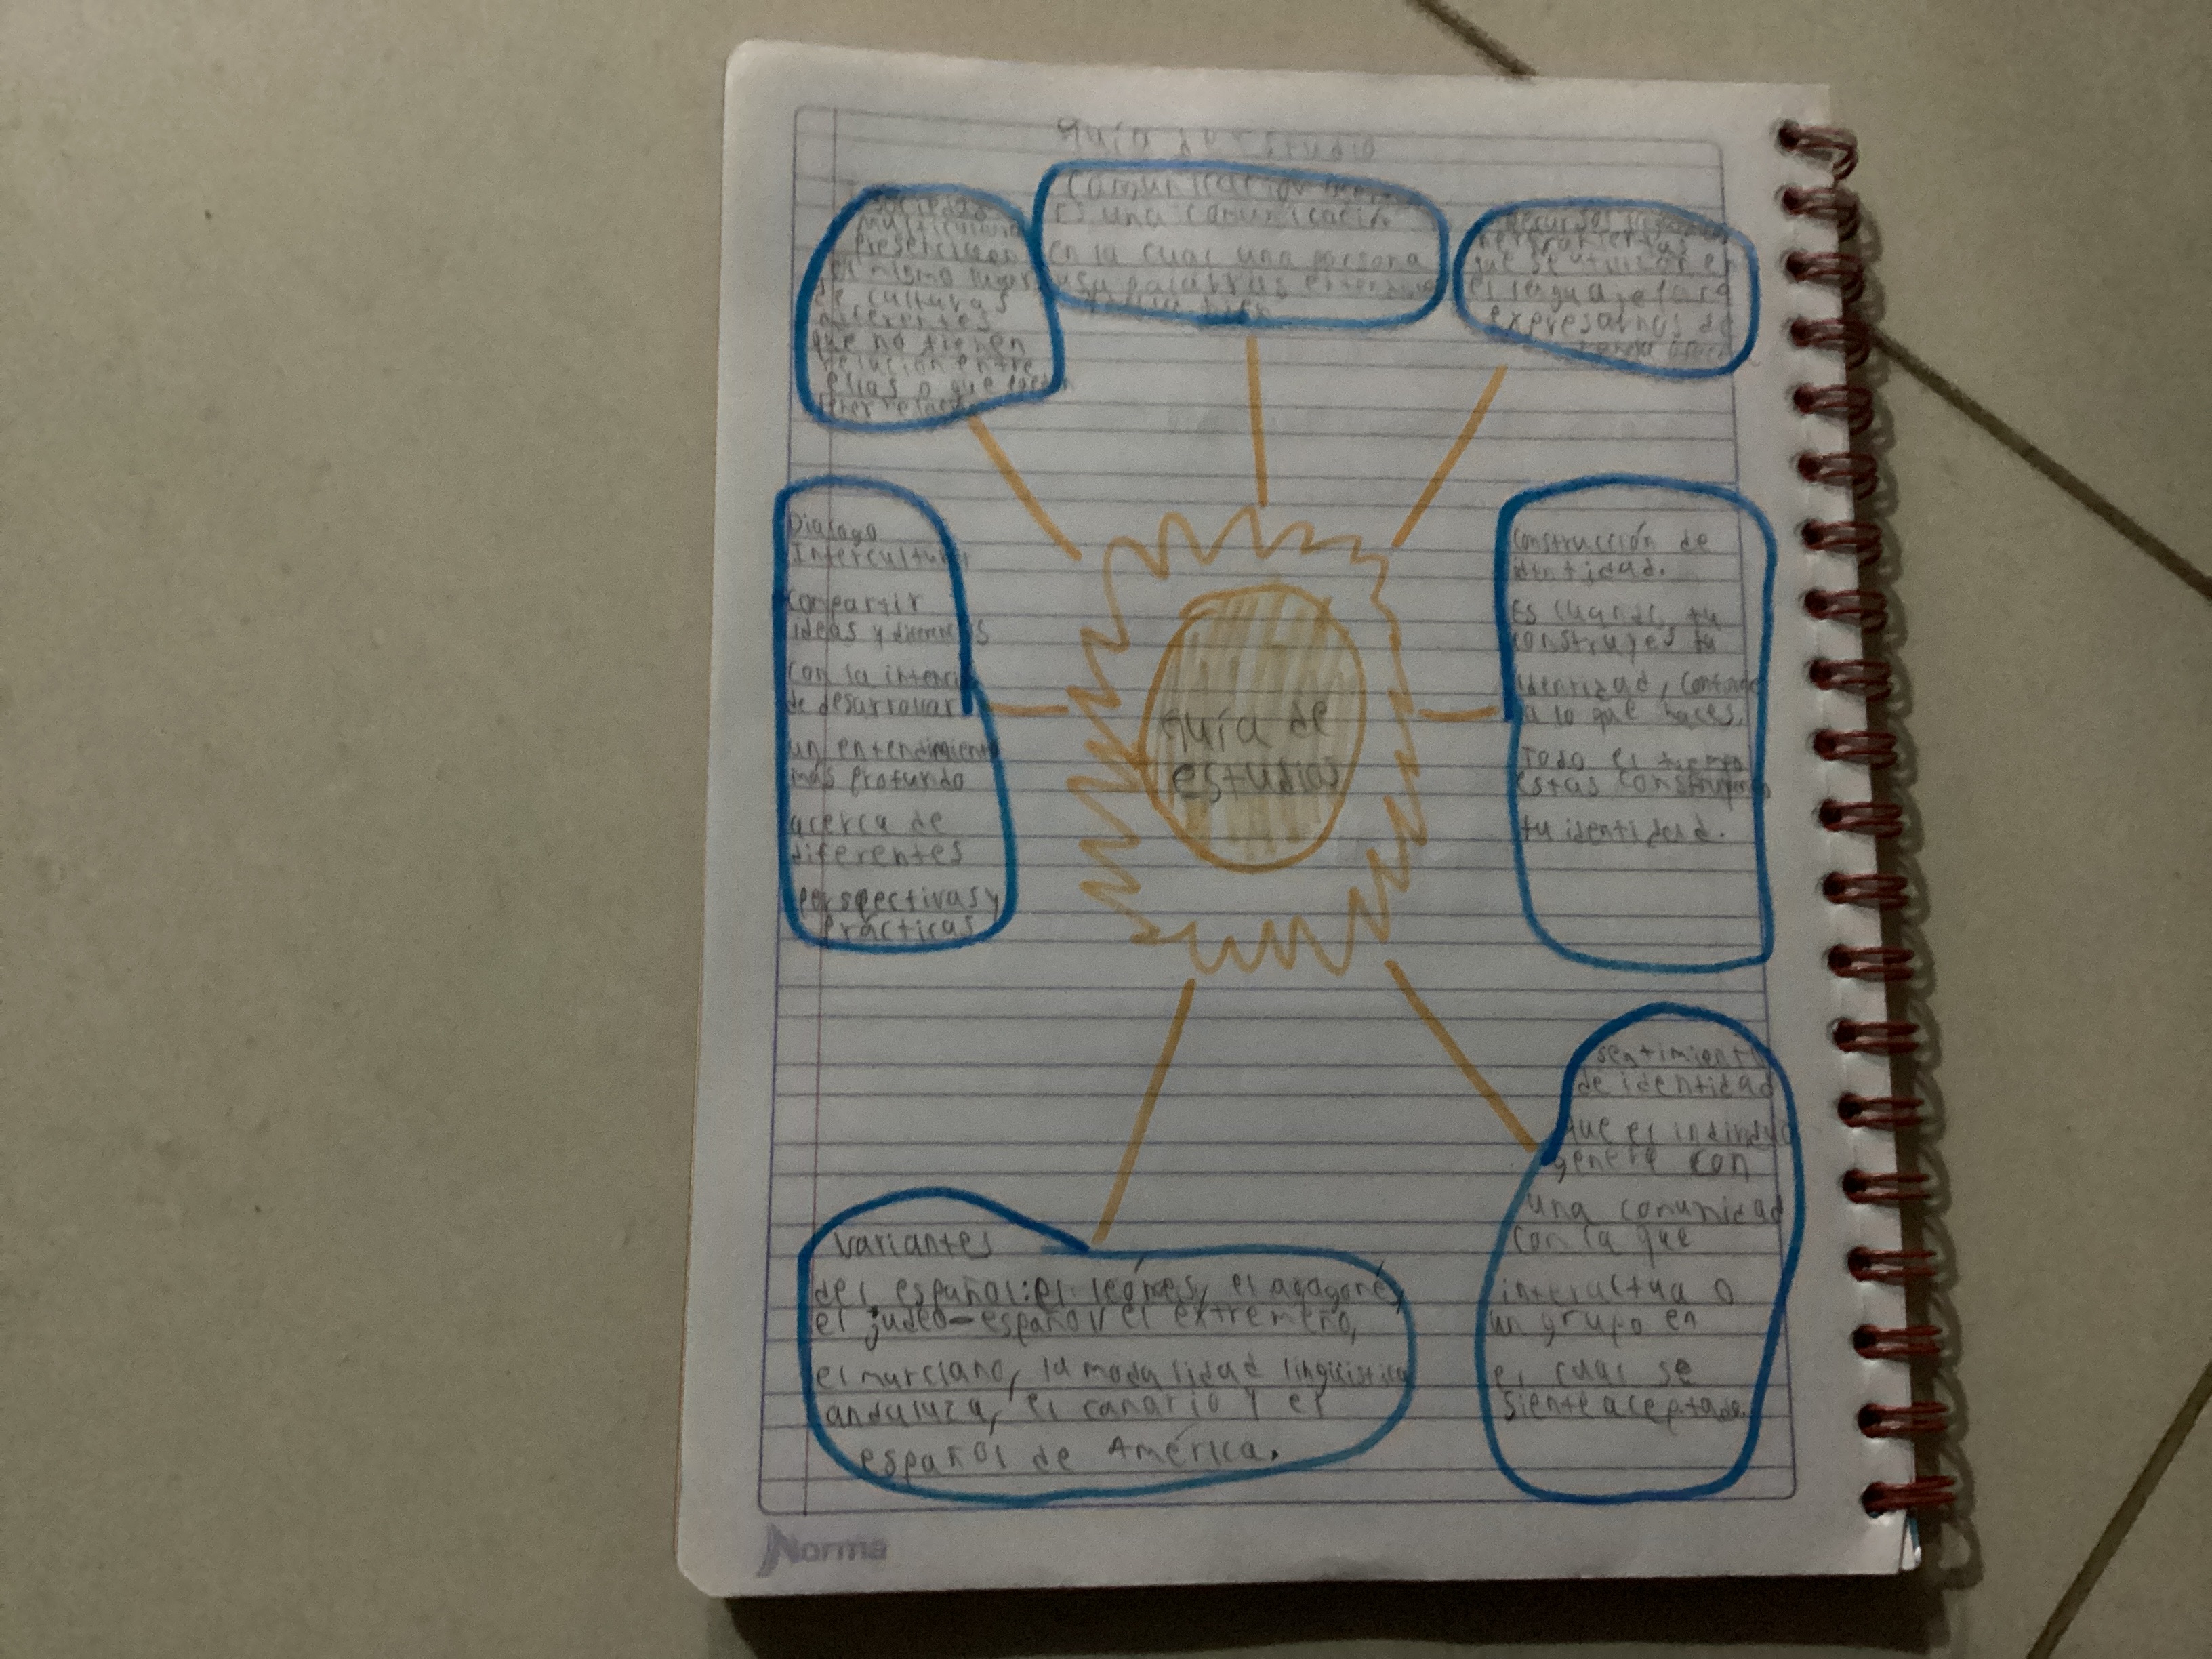 Guía de estudio
sociedad
multicultural
presencia en
el mismo lugar
de culturas
diferentes
que no tienen
relación entre
ellas o que
tener relación
Comunicación
es una comunicación
en la cual una persona
usa palabras
bien
recursos
herramientas
que se utilizar en
el lenguaje para
expresarnos de
Dialogo
Intercultural
compartir
ideas y
con la
de desarrollar
un entendimiento
más profundo
acerca de
diferentes
perspectivas y
prácticas
Guía de
estudios
construcción de
identidad.
Es cuando tu
construyes tu
identidad,
a lo que haces.
Todo el tiempo
estas
tu identidad.
sentimiento
de identidad
que el individuo
genere con
una comunidad
con la que
interactua o
un grupo en
el cual se
siente aceptado.
variantes
del español: el leónes, el aragoné,
el judeo-español, el extremeño,
el murciano, la modalidad lingüística
andaluza, el canario y el
español de América.
Norma